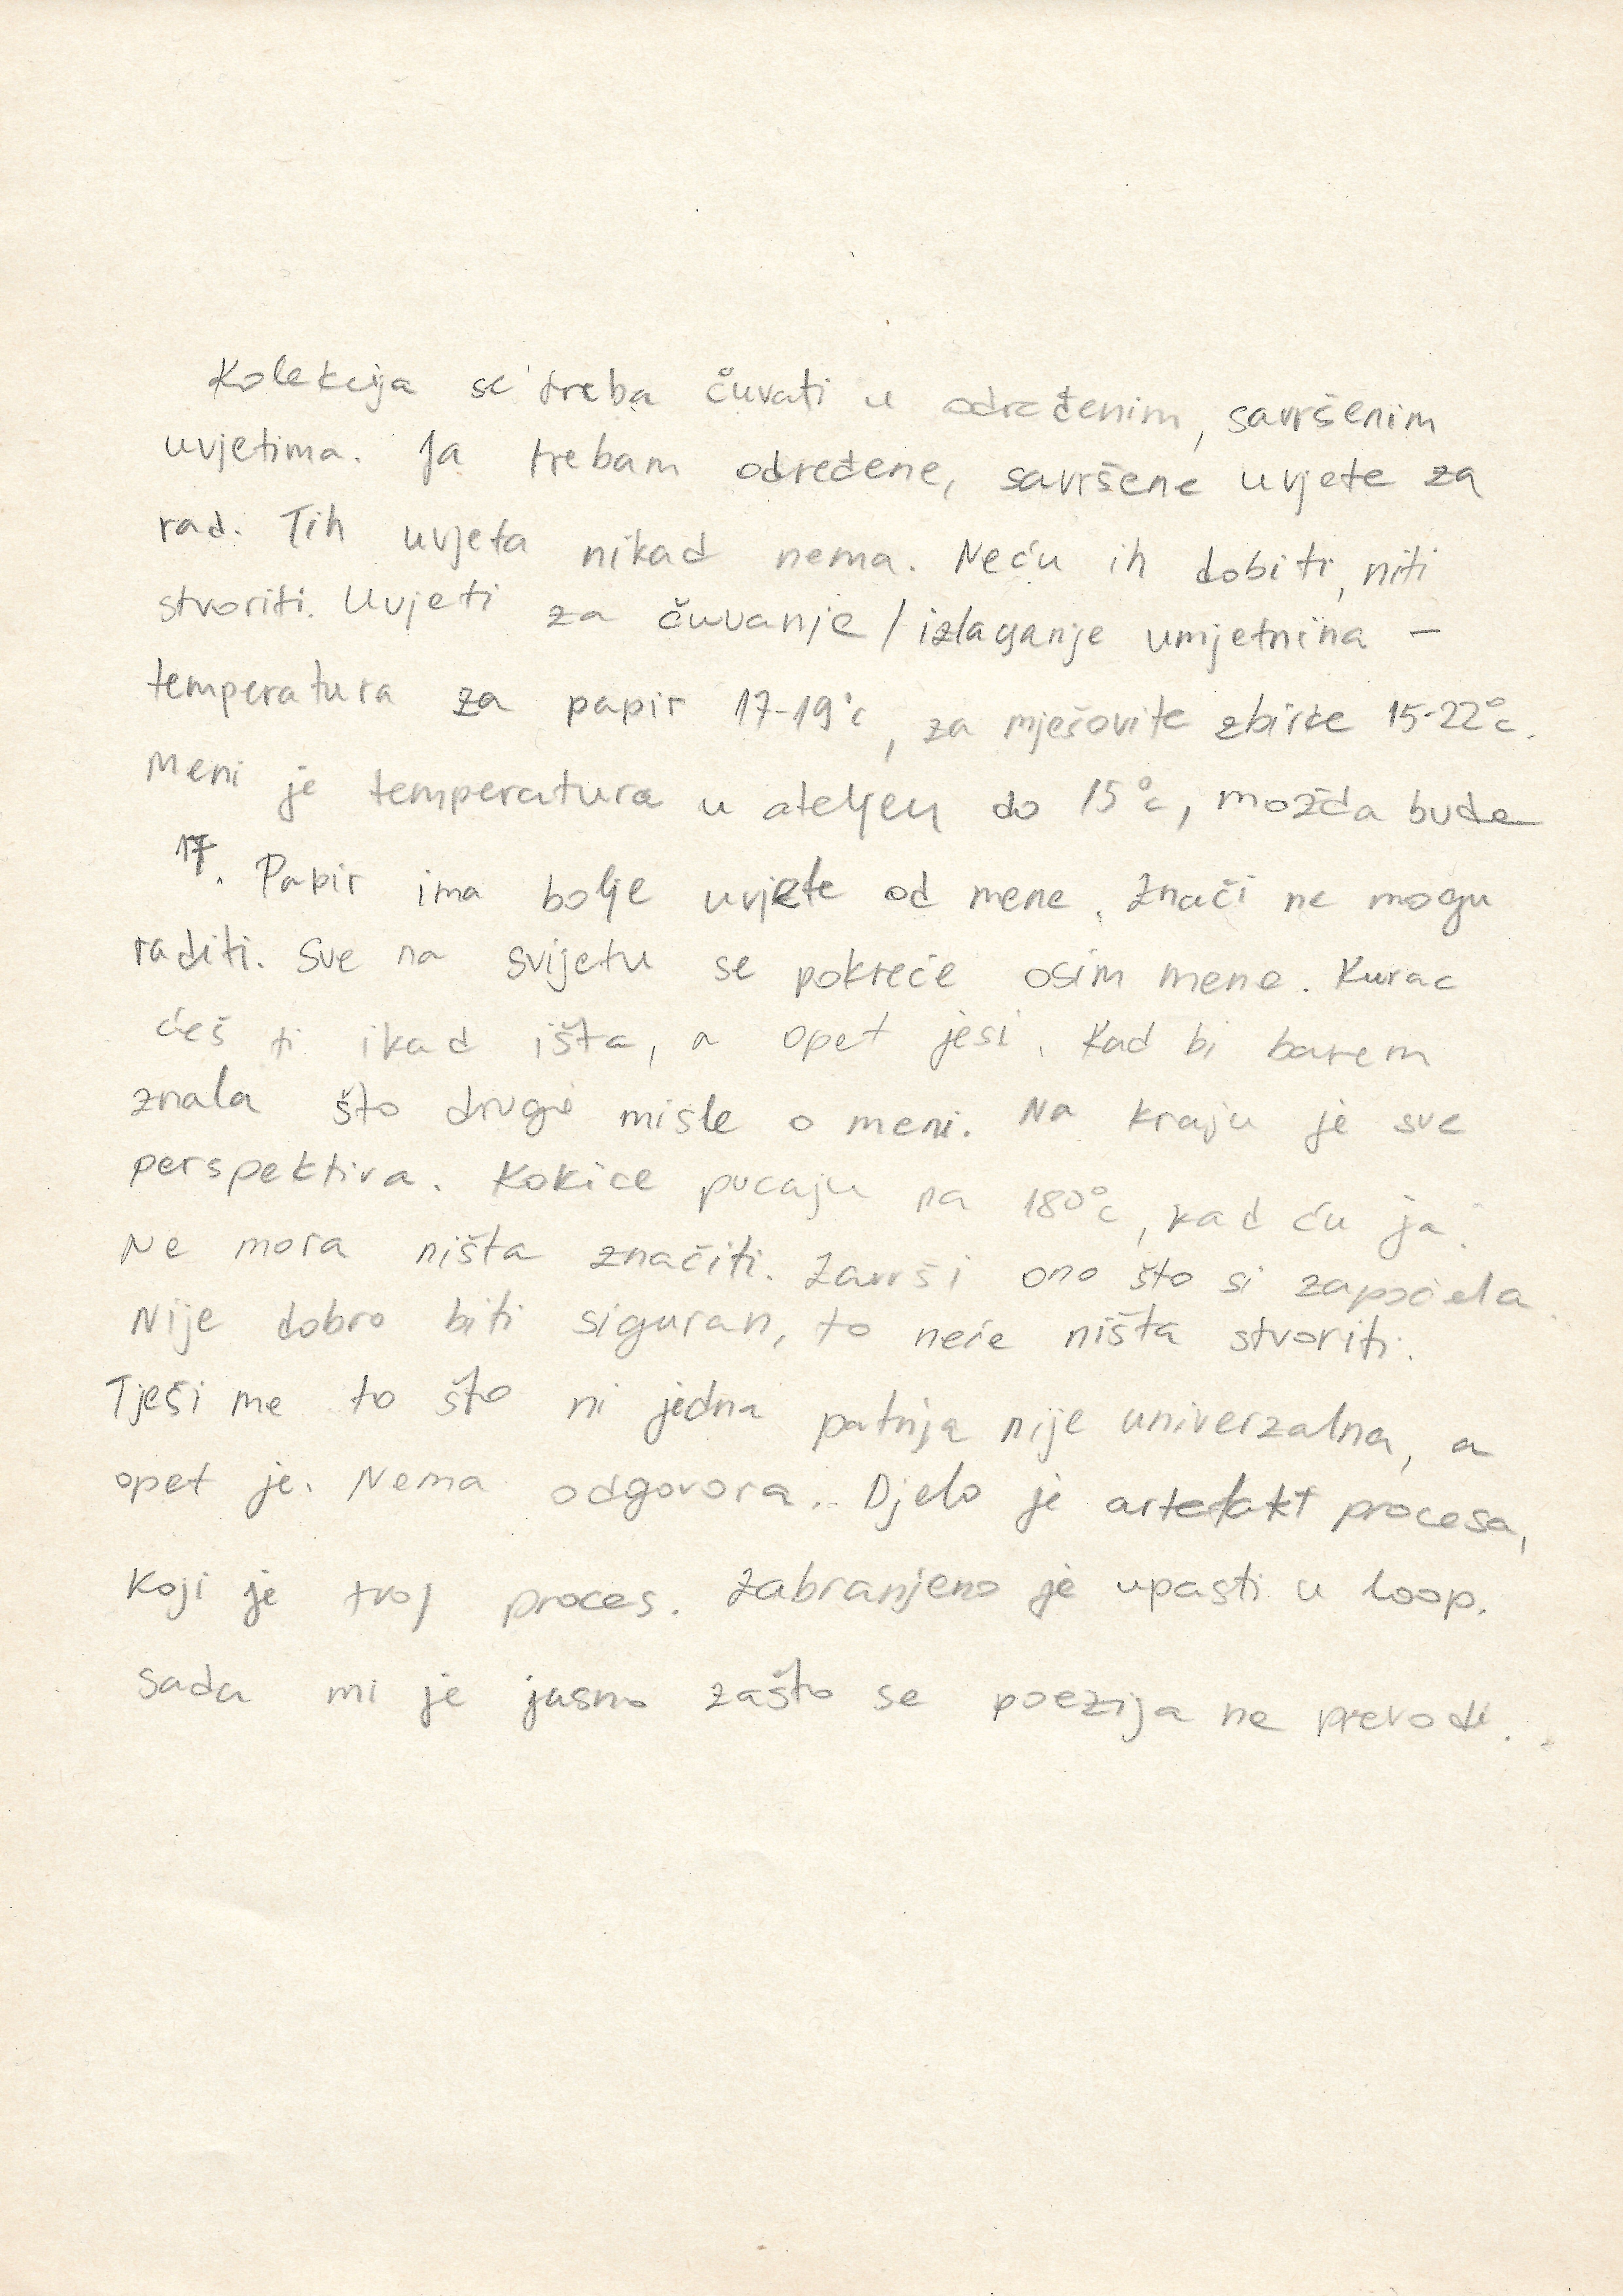 Kolekcija se treba čuvati u određenim, savršenim
uvjetima. Ja trebam određene, savršene uvjete za
rad. Tih uvjeta nikad nema. Neću ih dobiti, niti
stvoriti. Uvjeti za čuvanje / izlaganje umjetnina –
temperatura za papir 17-19°C, za mješovite zbirke 15-22°C.
Meni je temperatura u ateljeu do 15°C, možda bude
17. Papir ima bolje uvjete od mene. Znači ne mogu
raditi. Sve na svijetu se pokreće osim mene. Kurac
ćeš ti ikad išta, a opet jesi. Kad bi barem
znala što drugi misle o meni. Na kraju je sve
perspektiva. Kokice pucaju na 180°C, kad ću ja.
Ne mora ništa značiti. Završi ono što si započela.
Nije dobro biti siguran, to neće ništa stvoriti.
Tješi me to što ni jedna patnja nije univerzalna, a
opet je. Nema odgovora. Djelo je artefakt procesa,
koji je tvoj proces. Zabranjeno je upasti u loop.
Sada mi je jasno zašto se poezija ne prevodi.